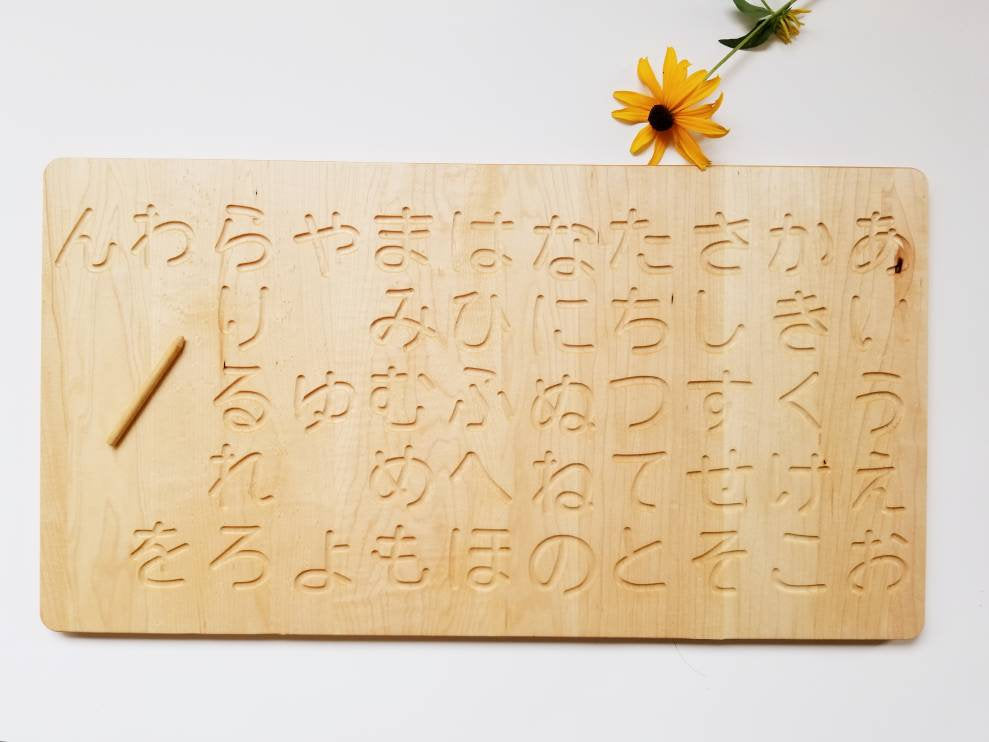 あいうえお
かきくけこ
さしすせそ
たちつてと
なにぬねの
はひふへほ
まみむめも
やゆよ
らりるれろ
わを
ん